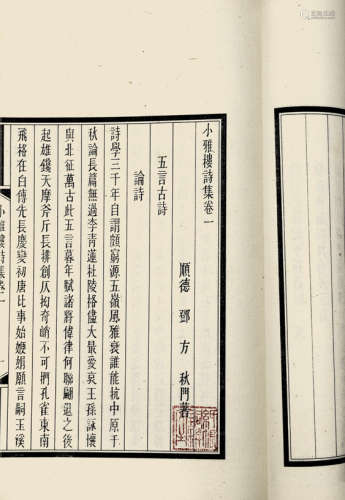 小雅樓詩集卷一
順德 鄧方 秋門著
五言古詩
論詩
詩學三千年自謂頗窮源五嶺風雅衰誰能抗中原千
秋論長篇無過李青蓮杜陵格儘大最愛哀王孫詠懷
與北征萬古此五言暮年賦諸將偉律何聯翩退之後
起雄鑱天摩斧斤長排創仄拗奇峭不可捫孔雀東南
飛格在白傅先長慶變初唐比事始嬋娟願言嗣玉溪
小雅樓詩集卷一